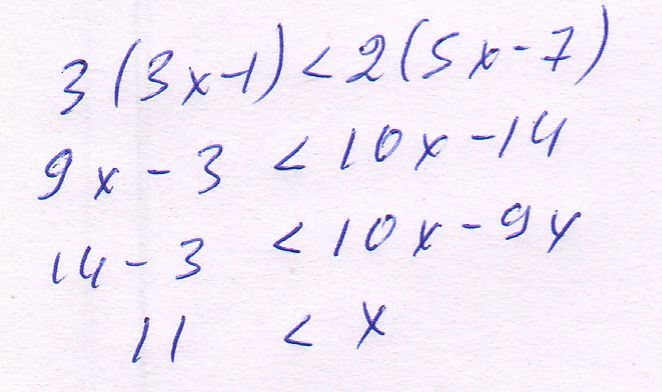 3(3x-1)<2(5x-7)
9x-3 <10x-14
14-3 <10x-9x
11 < x